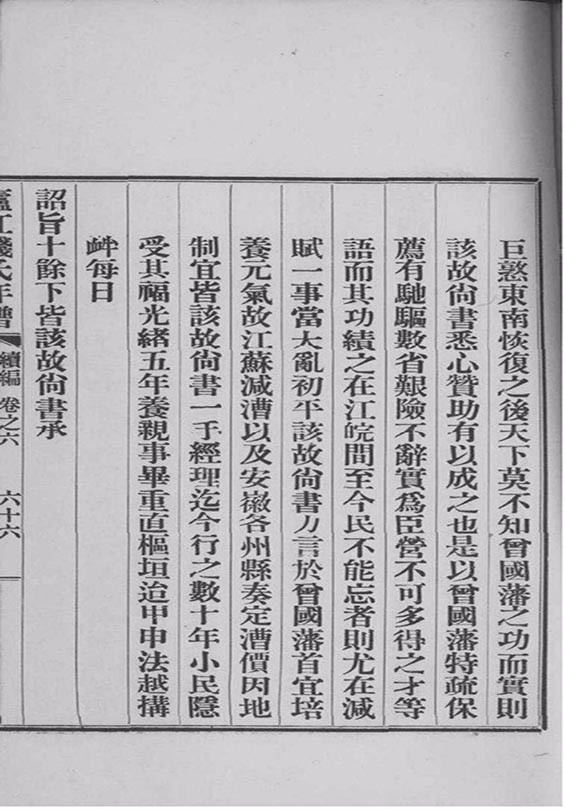 巨憝東南恢復之後天下莫不知曾國藩之功而實則
該故尙書悉心贊助有以成之也是以曾國藩特疏保
薦有馳驅數省艱險不辭實爲臣營不可多得之才等
語而其功績之在江皖間至今民不能忘者則尤在減
賦一事當大亂初平該故尙書力言於曾國藩首宜培
養元氣故江蘇減漕以及安徽各州縣奏定漕價因地
制宜皆該故尙書一手經理迄今行之數十年小民隱
受其福光緖五年養親事畢重直樞垣迨甲申法越搆
衅每日
詔旨十餘下皆該故尙書承
廬江錢氏年譜 續編 卷之六 六十六